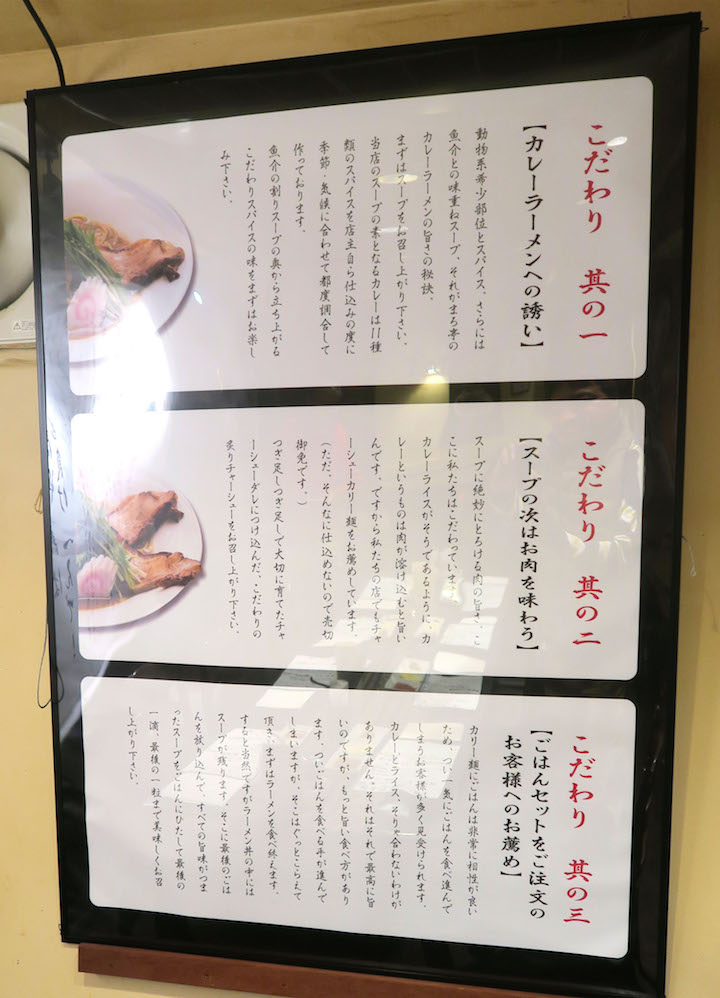 こだわり 其の一
【カレーラーメンへの誘い】
動物系希少部位とスパイス、さらには
魚介との味重ねスープ、それがまる亭の
カレーラーメンの旨さの秘訣、
まずはスープをお召し上がり下さい。
当店のスープの素となるカレーは11種
類のスパイスを店主自ら仕込みの度に
季節・気候に合わせて都度調合して
作っております。
魚介の割りスープの奥から立ち上がる
こだわりスパイスの味をまずはお楽し
み下さい。
こだわり 其の二
【スープの次はお肉を味わう】
スープに絶妙にとろける肉の旨さ、こ
こに私たちはこだわっています。
カレーライスがそうであるように、カ
レーというものは肉が溶け込むと旨い
んです。ですから私たちの店でもチャ
ーシューカリー麺をお薦めしています。
(ただ、そんなに仕込めないので売切
御免です。)
つぎ足しつぎ足しで大切に育てたチャ
ーシューダレにつけ込んだ、こだわりの
炙りチャーシューをお召し上がり下さい。
こだわり 其の三
【ごはんセットをご注文の
お客様へのお薦め】
カリー麺にごはんは非常に相性が良い
ため、つい一気にごはんを食べ進んで
しまうお客様が多く見受けられます。
カレーとライス、そりゃ合わないわけが
ありません。それはそれで最高に旨
いのですが、もっと旨い食べ方があり
ます。ついごはんを食べる手が進んで
しまいますが、そこはぐっとこらえて
頂き、まずはラーメンを食べ終えます。
すると当然ですがラーメン丼の中には
スープが残ります。そこに最後のごは
んを放り込んで、すべての旨味がつま
ったスープをごはんにひたして最後の
一滴、最後の一粒まで美味しくお召
し上がり下さい。